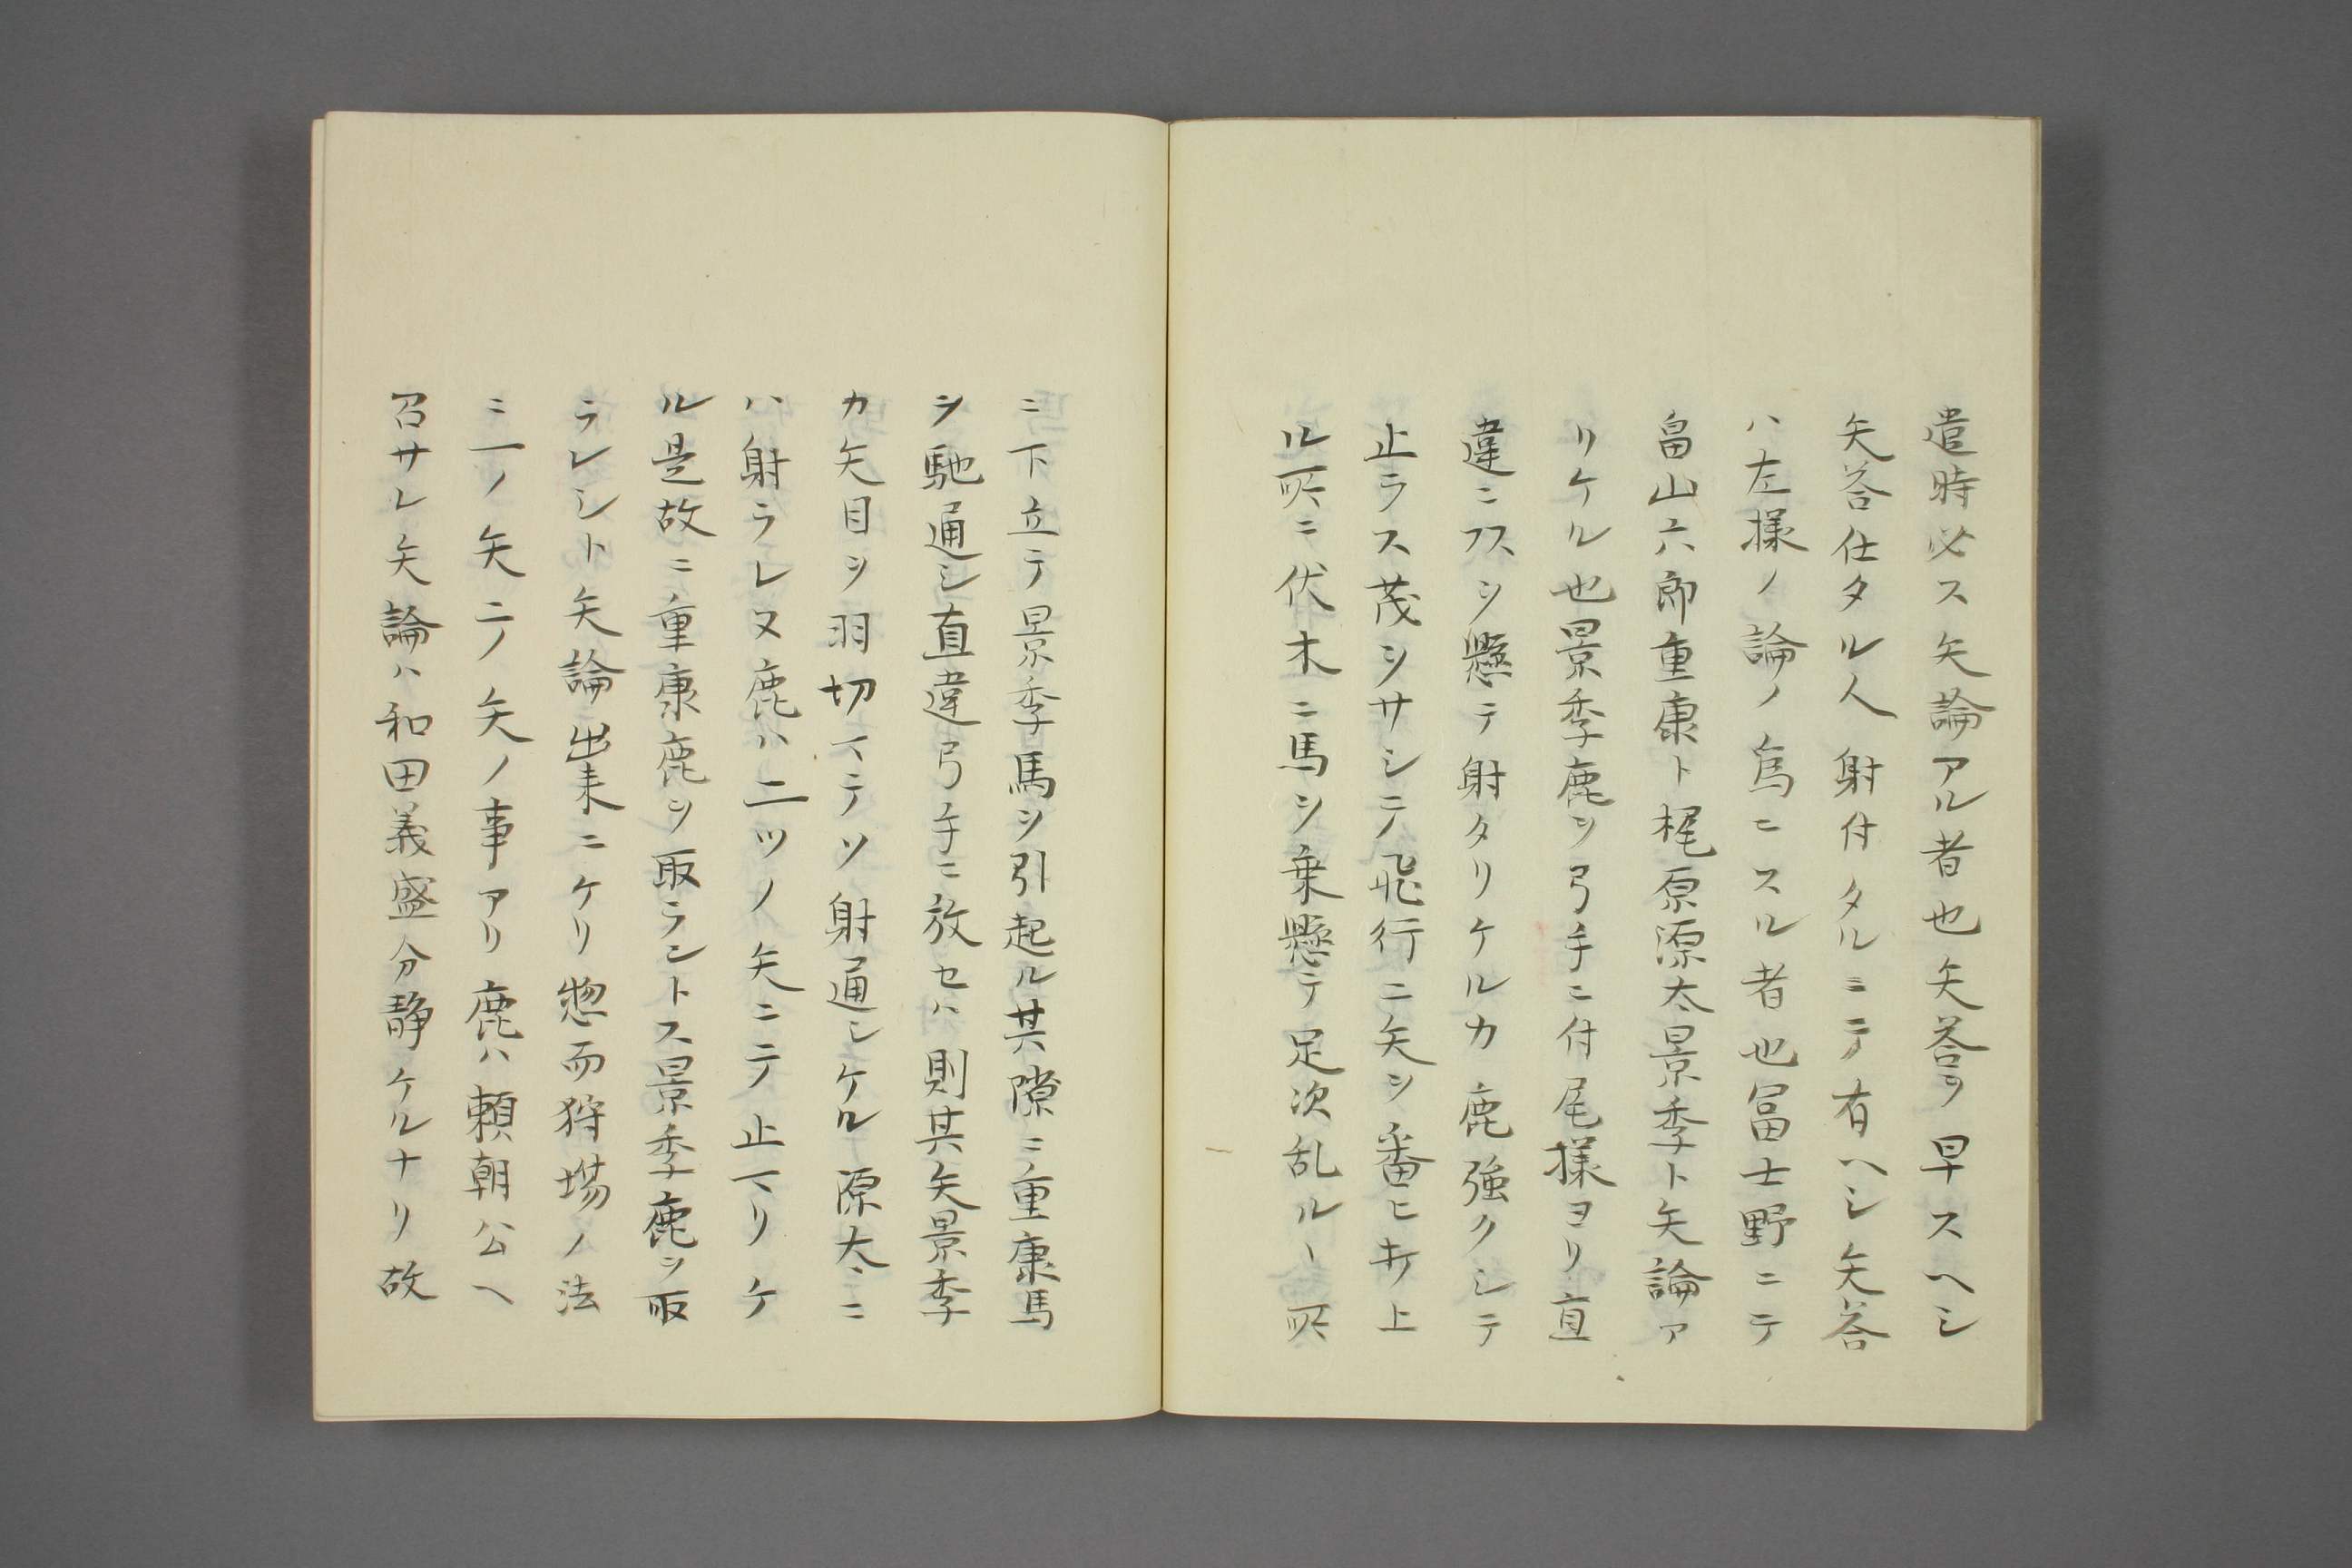 遣時必ス矢論アル者也矢荅ヲ早スヘシ
矢荅仕タル人射付タルミニテ有ヘシ矢荅
ハ左様ノ論ノ為ニスル者也冨士野ニテ
畠山六郎重康ト梶原源太景季ト矢論ア
リケル也景季鹿ヲ弓手ニ付尾様ヨリ直
違ニ押懸テ射タリケルカ鹿強クシテ
止ラス茂シサシニテ飛行ニ矢ヲ番ヒ打上
ル所ニ伏木ニ馬ヲ乗懸テ足次乱ルヽ所
ニ下立テ景季馬ヲ引起ル其隙ニ重康馬
ヲ馳通シ直違弓手ニ放セハ則其矢景季
カ矢目ヲ羽切マテソ射通シケル源太ニ
ハ射ラレヌ鹿ハ二ツノ矢ニテ止マリケ
ル是故ニ重康鹿ヲ取ラントス景季鹿ヲ取
ラレシト矢論出来ニケリ惣而狩場ノ法
ニ一ノ矢二ノ矢ノ事アリ鹿ハ頼朝公ヘ
召サレ矢論ハ和田義盛分静ケルナリ故